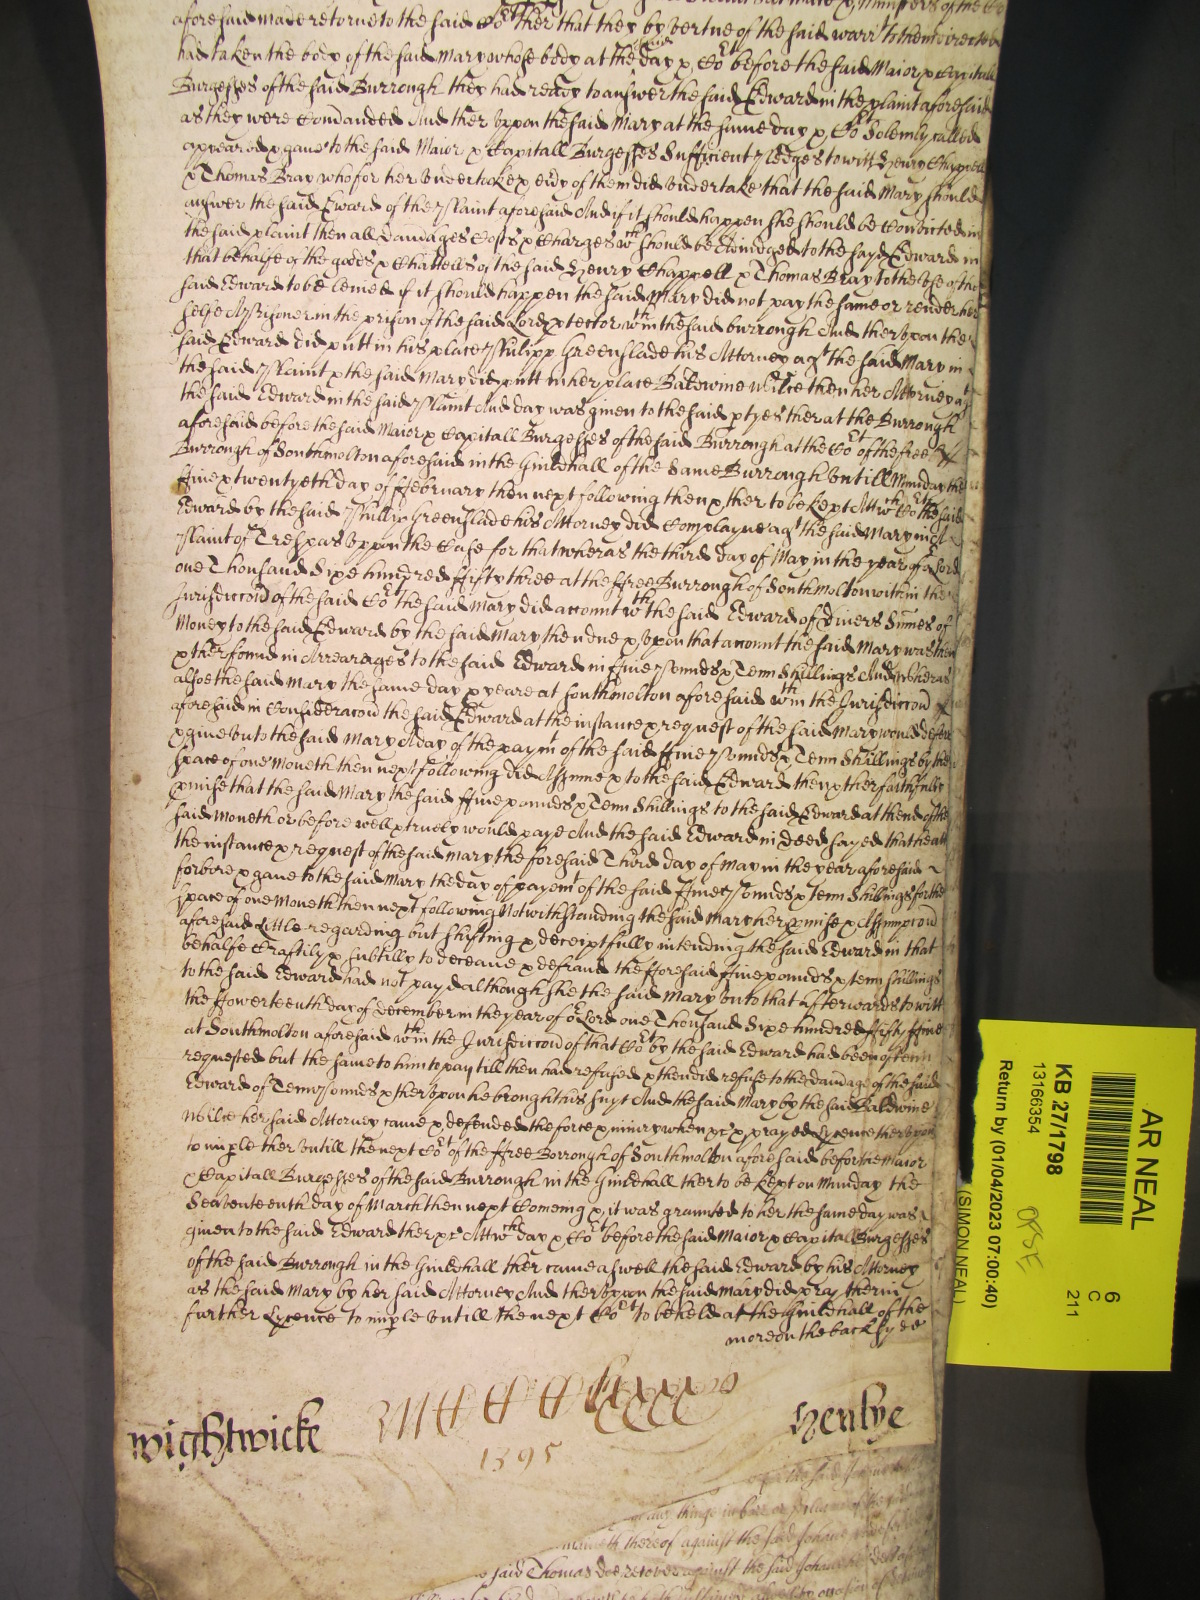 aforesaid made retorne to the said Cort ther that they by vertue of the said warrt to them directed
had taken the body of the said Mary whose body at the same day & Cort before the said Maior & Capitall
Burgesses of the said Burrough they had ready to answer the said Edward in the plaint aforesaid
as they were Comanded And ther vppon the said Mary at the same day & Cort Solemly called
appeared & gaue to the said Maior & Capitall Burgesses Sufficient Pledges to witt Henry Chappell
& Thomas Bray who for her vndertake & eu'y of them did vndertake that the said Mary should
answer the said Edward of the Plaint aforesaid And if it should happen she should be Convicted in
the said plaint then all Damages Costs & Charges wch should be Adiudged to the sayd Edward in
that behalfe of the goods & Chattells of the said Henry Chappell & Thomas Bray to the vse of the
said Edward to be levied if it should happen the said Mary did not pay the same or render her
selfe A Prisoner in the prison of the said Lord ptector wthin the said burrough And thervppon the
said Edward did putt in his place Phillipp Greenslade his Attorney agt the said Mary in
the said Plaint & the said Mary did putt in her place Baldwine Wilce then her Attorney agt
the said Edward in the said Plaint And day was given to the said ptyes ther at the Burrough
aforesaid before the said Maior & Capitall Burgesses of the said Burrough at the Cort of the free
Burrough of Southmolton aforesaid in the Guildhall of the same Burrough vntill Munday the
five & twentyeth day of ffebruary then next following then & ther to be kept Att wch Cort the said
Edward by the said Phillip Greenslade his Attorney did Complayne agt the said Mary in a
Plaint of Trespas vppon the Case for that wheras the third day of May in the year of or Lord
one Thousand Sixe hundred ffifty three at the ffree Burrough of Southmolton within the
Jurisdiccon of the said Cort the said Mary did accompt wth the said Edward of divers Sumes of
Money to the said Edward by the said Mary then due & vppon that account the said Mary was then
& ther found in Arrearages to the said Edward in ffive Pounds & Tenn Shillings And Wheras
alsoe the said Mary the same day & yeare at Southmolton aforesaid wthin the Jurisdiccon
aforesaid in Consideracon the said Edward at the instance & request of the said Mary would deferr
& give vnto the said Mary A day of the paymt of the said ffive Pounds & Tenn Shillings by the
space of one Moneth then next following did Assume & to the said Edward then & ther faithfully
pmise that the said Mary the said ffive pounds & Tenn Shillings to the said Edward at thend of the
said Moneth or before well & truely would paye And the said Edward in Deed sayed that he att
the instance & request of the said Mary the foresaid Third day of May in the year aforesaid
forbore & gave to the said Mary the day of payemt of the said ffive Pounds & tenn Shillings for the
space of one Moneth then next following Notwithstanding the said Mary her pmise & Assumpcon
aforesaid Little regarding but shifting & deceiptfully intending the said Edward in that
behalfe Craftily & subtilly to deceave & defraud the fforesaid ffive pounds & tenn shillings
to the said Edward had not payd although she the said Mary vnto that afterwards to witt
the ffowerteenth day of December in the year of or Lord one Thousand Sixe hundred ffifty ffive
at Southmolton aforesaid wthin the Jurisdiccon of that Cort by the said Edward had been often
requested but the same to him to pay till then had refused & then did refuse to the damadge of the said
Edward of Tenn Pounds & thervppon he brought his suyt And the said Mary by the said Baldwine
Wilce her said Attorney came & defended the force & iniury when &c & prayed Lycence thervppon
to imple ther vntill the next Cort of the ffree Borrough of Southmolton aforesaid before the Maior
& Capitall Burgesses of the said Burrough in the Guildhall ther to be kept on Munday the
Seaventeenth day of March then next Comeing & it was graunted to her the same day was
given to the said Edward ther &c Att wch day & Cort before the said Maior & Capitall Burgesses
of the said Burrough in the Guildhall ther came as well the said Edward by his Attorney
as the said Mary by her said Attorney And thervppon the said Mary did pray therin
further Lycence to imple vntill the next Cort to be held at the Guildhall of the
more on the back syde
Wightwicke
Henlye
1395
said Thomas doe recover against the said Johane
AR NEAL
6
C
211
KB 27/1798
13166354
Return by (01/04/2023 07:00:40)
(SIMON NEAL)